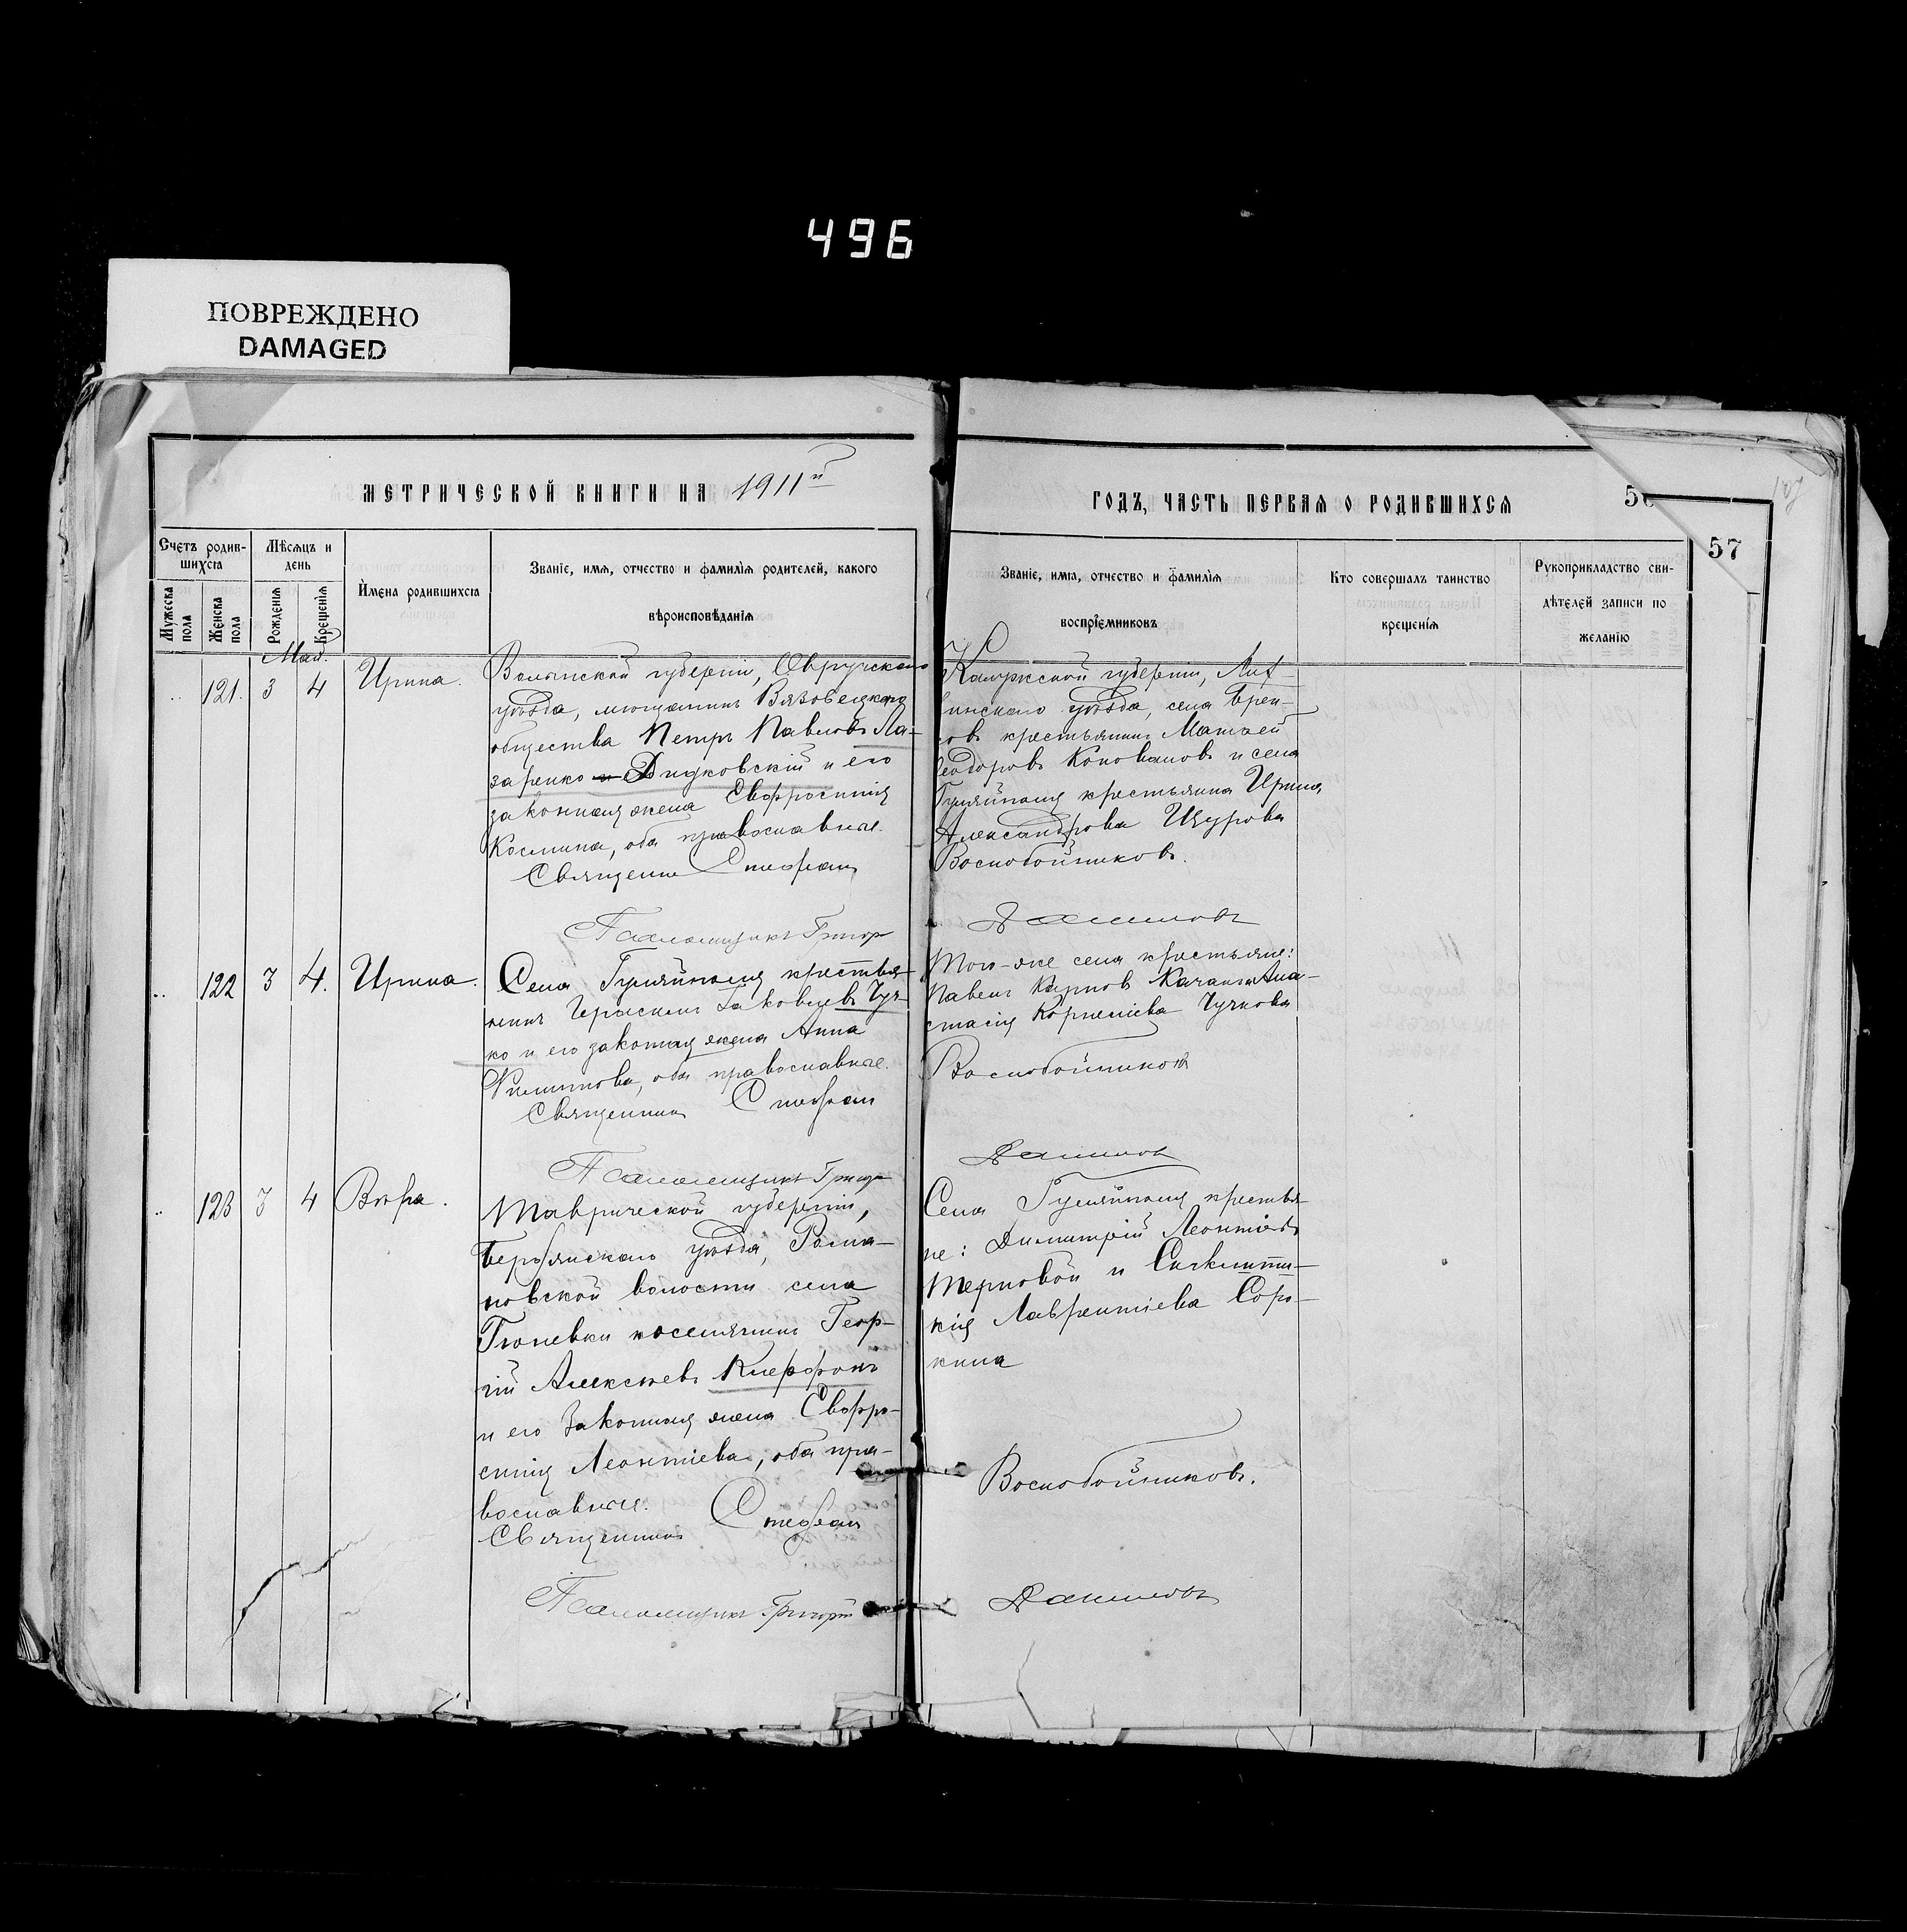 496
ПОВРЕЖДЕНО
DAMAGED
МЕТРИЧЕСКОЙ КНИГИ НА 1911й
ГОДЪ, ЧАСТЬ ПЕРВАЯ О РОДИВШИХСЯ
57
Счетъ родив-
шихся
Мѣсяцъ и
день
Мужеска пола
Женска пола
Рожденія
Крещенія
Имена родившихся
Званіе, имя, отчество и фамилія родителей, какого
вѣроисповѣданія
Званіе, имя, отчество и фамилія
воспріемниковъ
Кто совершалъ таинство
крещенія
Рукоприкладство сви-
дѣтелей записи по
желанію
Май.
121. 3 4 Ирина.
Волынской губерніи, Овручскаго
уѣзда, мѣщанинъ Вязовецкаго
общества Петръ Павловъ Ла-
заренко Дидковскій и его
законная жена Евфросинія
Космина, оба православные.
Священникъ Стефанъ
Псаломщикъ Григор
Калужской губерніи, Лих-
винскаго уѣзда, села
крестьянинъ Матѳей
Ѳеодоровъ Коноваловъ и села
Гуляйполя крестьянка Ирина
Александрова Щурова
Воскобойниковъ.
Даниловъ
122 3 4. Ирина.
Села Гуляйполя крестья-
нинъ Герасимъ Іаковлевъ Чуч-
ко и его законная жена Анна
Филиппова, оба православные.
Священникъ Стефанъ
Псаломщикъ Григор
Того-же села крестьяне:
Павелъ Карповъ Качанъ и Ана-
стасія Корнеліева Чучкова
Воскобойниковъ
Даниловъ
123 3 4 Вѣра.
Таврической губерніи,
Бердянскаго уѣзда, Рома-
новской волости села
Гюневки поселянинъ Геор-
гій Алексѣевъ
и его законная жена Евфро-
синія Леонтіева, оба пра-
вославные.
Священникъ Стефанъ
Псаломщикъ Григорій
Села Гуляйполя крестья-
не: Димитрій Леонтіевъ
Терновой и Синклити-
кія Лаврентіева Соро-
кина
Воскобойниковъ.
Даниловъ